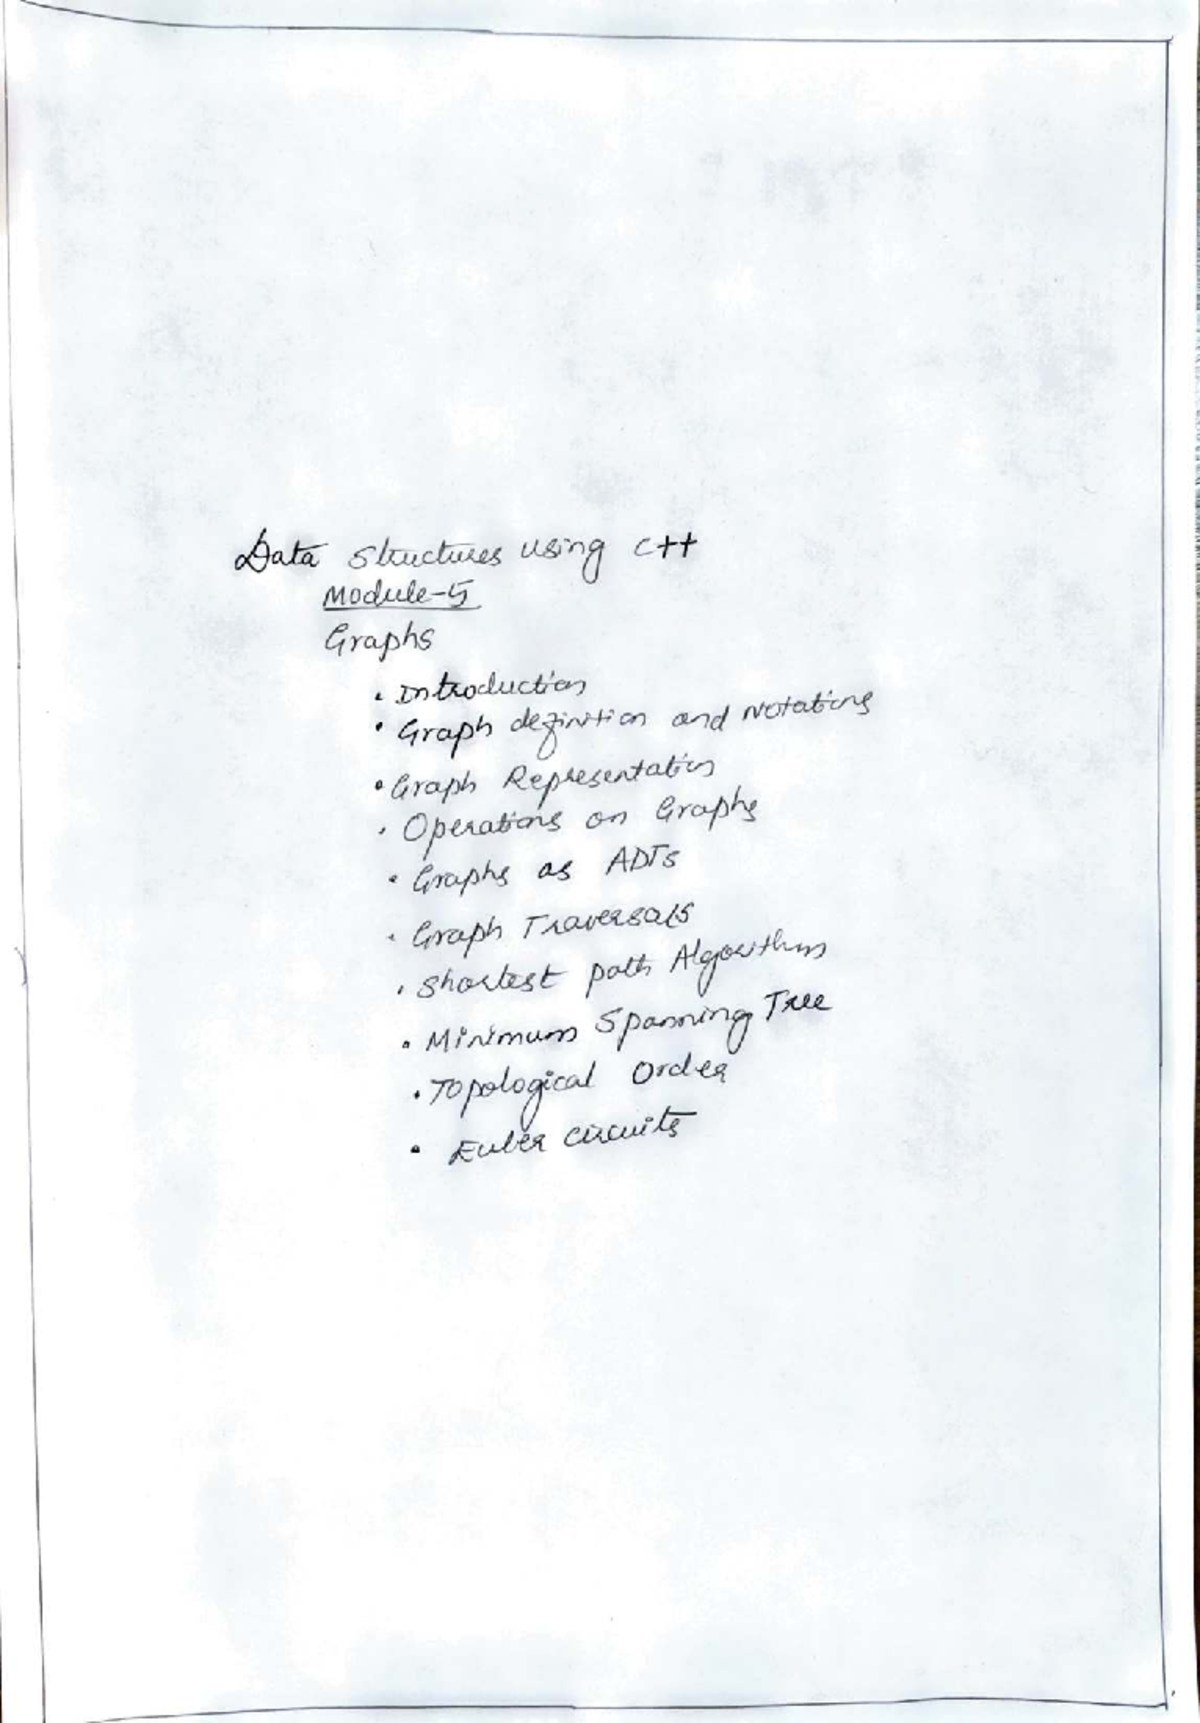 Data Structures using C++
Module-5
Graphs
• Introduction
• Graph definition and Notations
• Graph Representation
• Operations on Graphs
• Graphs as ADTs
• Graph Traversals
• Shortest path Algorithms
• Minimum Spanning Tree
• Topological Order
• Euler circuits